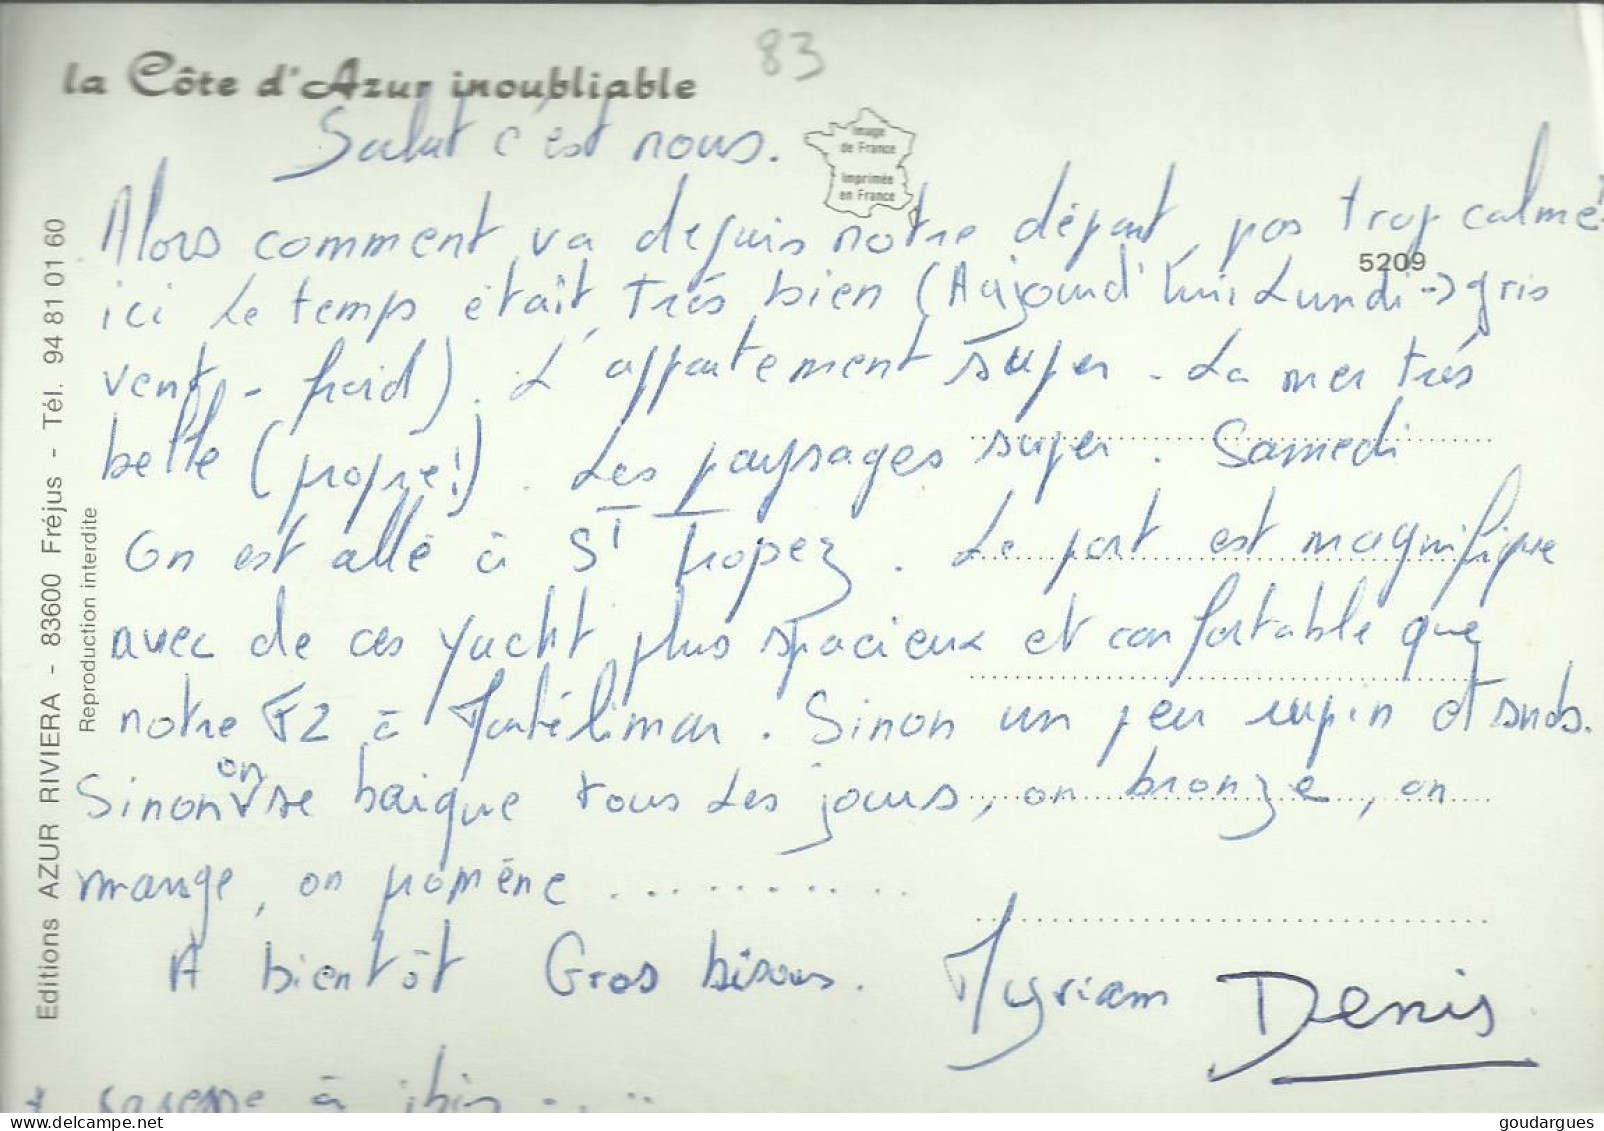 83
la Côte d'Azur inoubliable
Salut c'est nous.
Image
de France
Imprimée
en France
Alors comment va depuis notre départ, pas trop calme?
5209
ici Le temps était très bien (Aujourd'hui Lundi → gris
vent - froid). L'appartement super. La mer très
belle (propre!). Les paysages super. Samedi
On est allé à St Tropez. Le port est magnifique
avec de ces yacht plus spacieux et confortable que
notre F2 à Montélimar. Sinon un peu rupin et snobs.
Sinon on se baigne tous Les jours, on bronze, on
mange, on promène ..........
A bientôt Gros bisous. Myriam Denis
à
Editions AZUR RIVIERA - 83600 Fréjus - Tél. 94 81 01 60
Reproduction interdite
goudargues